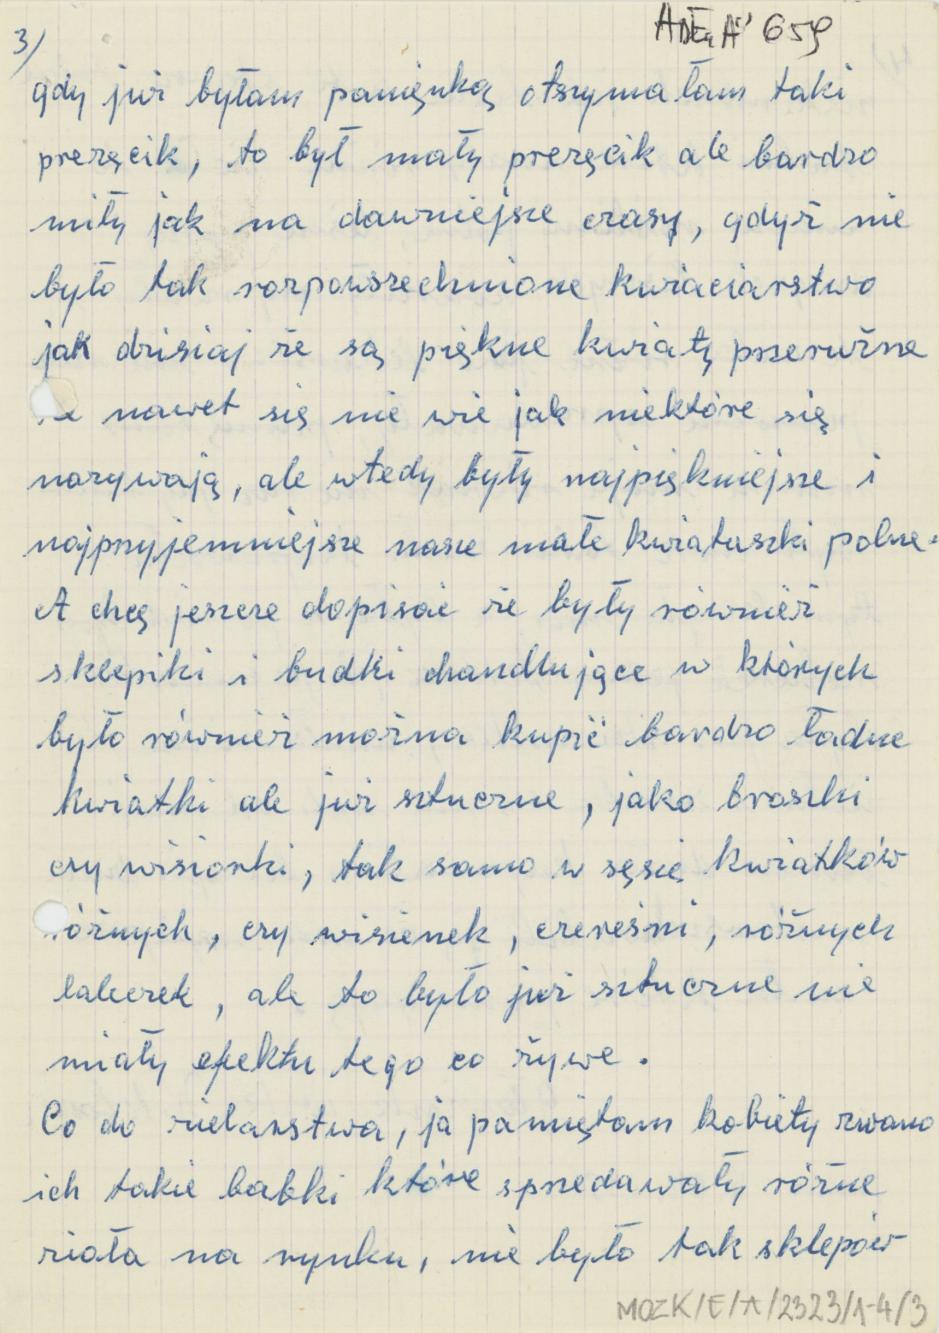 3)
gdy już byłam panięnką otszymałam taki
prezęcik, to był mały prezęcik ale bardzo
miły jak na dawniejsze czasy, gdyż nie
było tak rozpowszechnione kwiaciarstwo
jak dzisiaj że są piękne kwiaty pszerużne
nawet się nie wie jak niektóre się
nazywają, ale wtedy były najpiękniejsze i
najpszyjemniejsze nasze małe kwiatuszki polne.
A chcę jeszcze dopisać że były również
sklepiki i budki chandlujące w których
było również można kupić bardzo ładne
kwiatki ale już sztuczne, jako broszki
czy wisiorki, tak samo w sęsię kwiatków
óżnych, czy wisienek, czereśni, różnych
laleczek, ale to było już sztuczne nie
miały efektu tego co żywe.
Co do zielarstwa, ja pamiętam kobiety zwano
ich takie babki które spszedawały różne
zioła na rynku, nie było tak sklepów
MOZK/E/A/2323/1-4/3